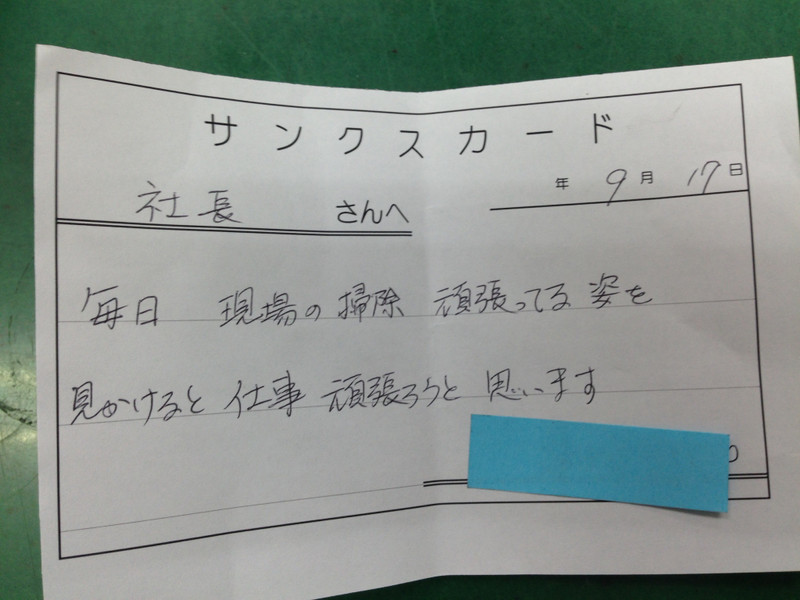 サンクスカード
年 9月 17日
社長 さんへ
毎日 現場の掃除 頑張ってる 姿を
見かけると 仕事 頑張ろうと 思います